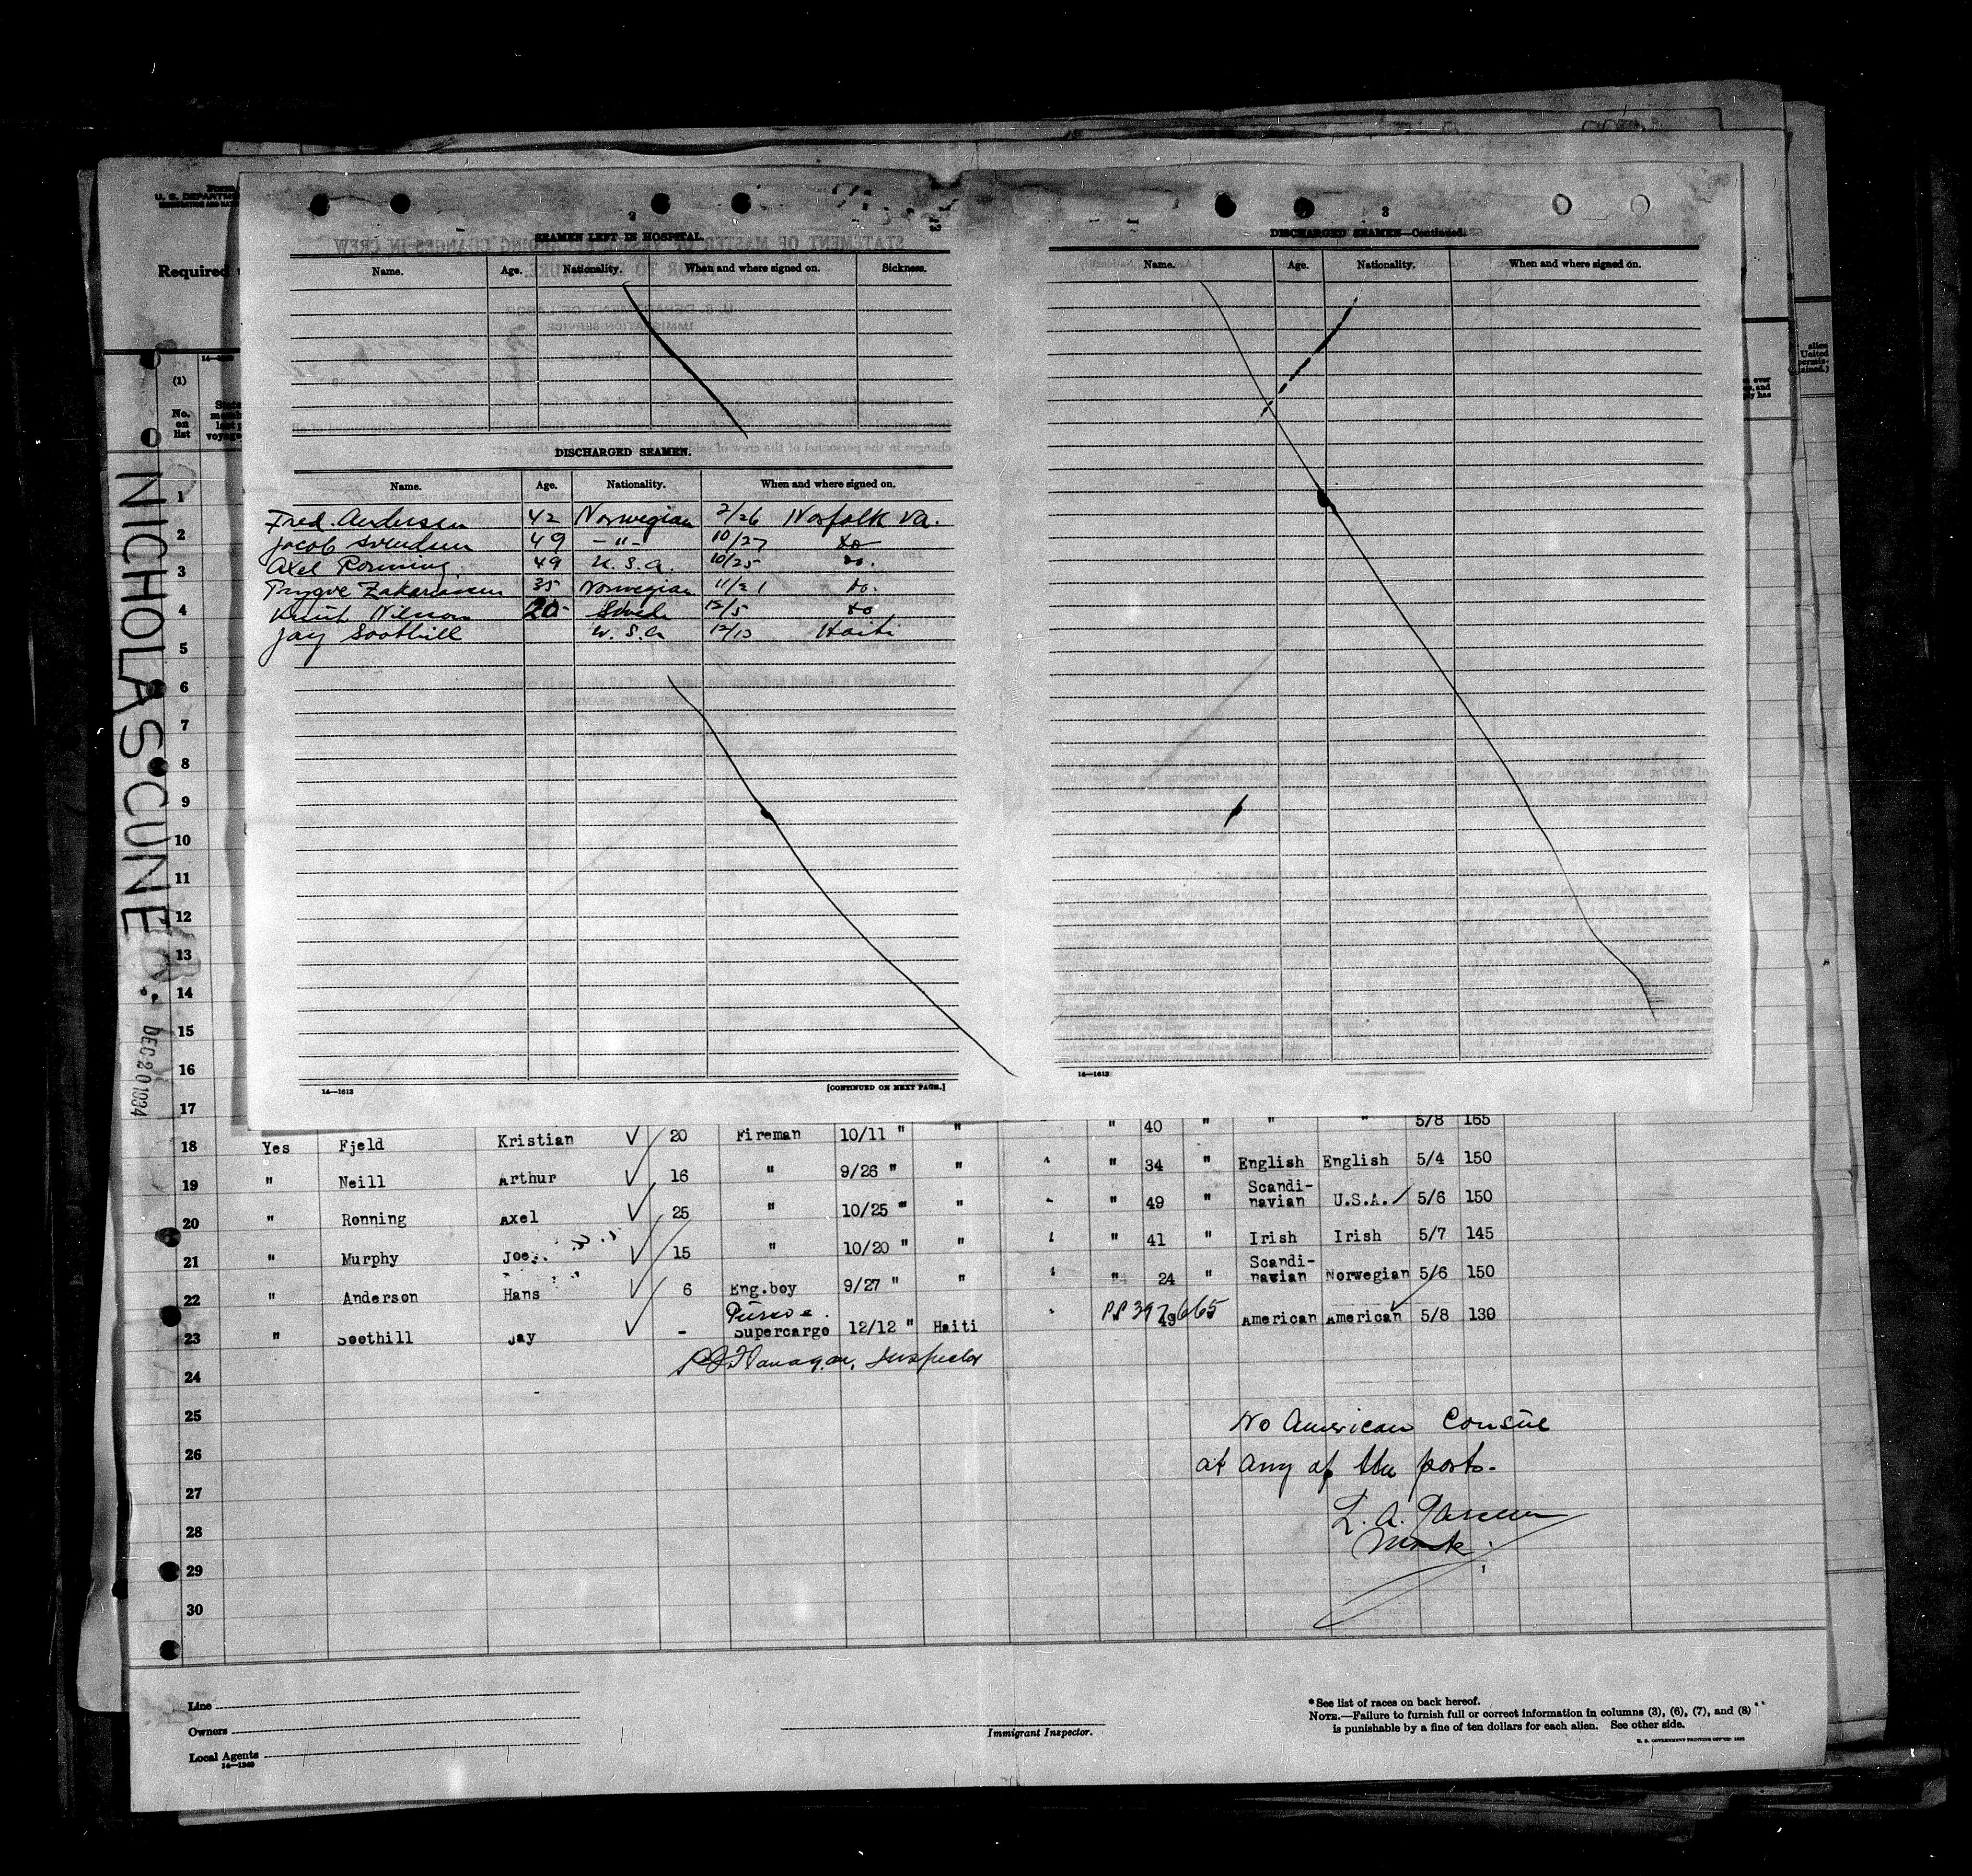 NICHOLAS CUNEO.
DEC 20 1934
Form
U. S. DEPARTM
Required
14—1240
(1)
No. on list
alien
United
permis-
ained.)
2
SEAMEN LEFT IN HOSPITAL.
Name. Age. Nationality. When and where signed on. Sickness.
DISCHARGED SEAMEN.
Name. Age. Nationality. When and where signed on.
Fred. Andersen 42 Norwegian 2/26 Norfolk Va.
Jacob Svendsen 49 -"- 10/27 do
Axel Ronning 49 U.S.A. 10/25 do.
Trygve Zakariassen 35 Norwegian 11/21 do.
Knut Nilsson 20 Swed 12/5 do
Jay Soothill U.S.A 12/13 Haiti
14—1613
[CONTINUED ON NEXT PAGE.]
3
DISCHARGED SEAMEN—Continued.
Name. Age. Nationality. When and where signed on.
14—1613
1
2
3
4
5
6
7
8
9
10
11
12
13
14
15
16
17 " 40 " " " 5/8 165
18 Yes Fjeld Kristian 20 Fireman 10/11 " "
19 " Neill Arthur 16 " 9/26 " " " 34 " English English 5/4 150
20 " Rønning Axel 25 " 10/25 " " " 49 " Scandi-navian U.S.A. 5/6 150
21 " Murphy Joe 15 " 10/20 " " " 41 " Irish Irish 5/7 145
22 " Anderson Hans 6 Eng.boy 9/27 " " " 24 " Scandi-navian Norwegian 5/6 150
Purso
23 " Soothill Jay - Supercargo 12/12 " Haiti PP 397665 49 American American 5/8 130
Flanagan, Inspector
24
25 No American Consul
26 at any of the ports.
27 L. A.
28
29
30
Line
Owners
Local Agents
14—1240
Immigrant Inspector.
* See list of races on back hereof.
NOTE.—Failure to furnish full or correct information in columns (3), (6), (7), and (8)
is punishable by a fine of ten dollars for each alien. See other side.
U. S. GOVERNMENT PRINTING OFFICE